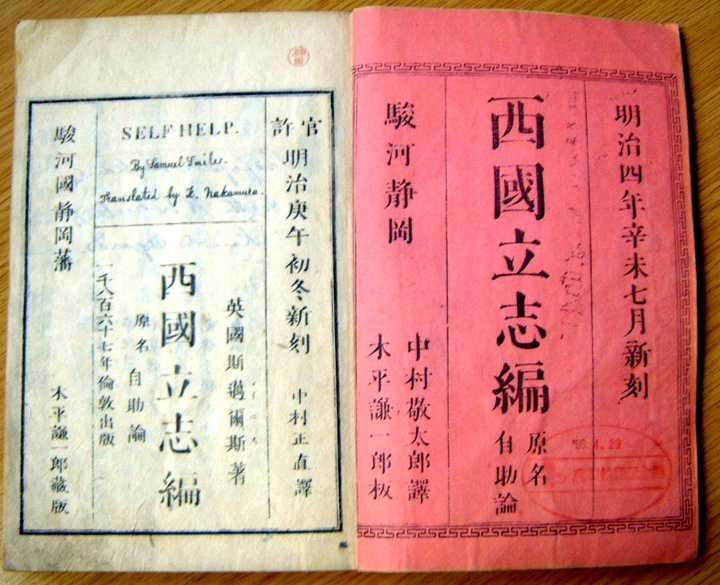 明治四年辛未七月新刻
西國立志編
原名
自助論
駿河静岡
中村敬太郎譯
木平謙一郎板
官許
明治庚午初冬新刻
中村正直譯
SELF-HELP.
By Samuel Smiles.
Translated by Nakamura.
英國斯邁爾斯著
西國立志編
原名 自助論
一千八百六十七年倫敦出版
駿河國静岡藩
木平謙一郎藏版